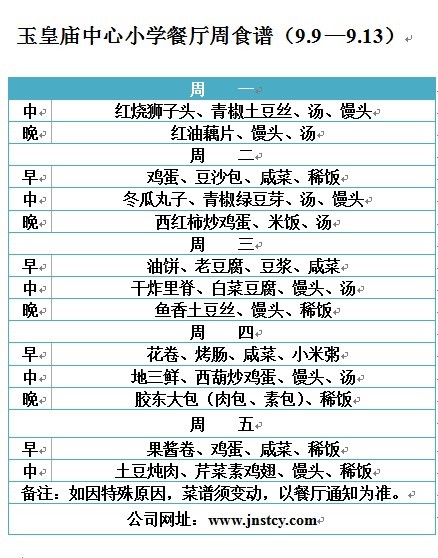 玉皇庙中心小学餐厅周食谱（9.9—9.13）
周 一
中 红烧狮子头、青椒土豆丝、汤、馒头
晚 红油藕片、馒头、汤
周 二
早 鸡蛋、豆沙包、咸菜、稀饭
中 冬瓜丸子、青椒绿豆芽、汤、馒头
晚 西红柿炒鸡蛋、米饭、汤
周 三
早 油饼、老豆腐、豆浆、咸菜
中 干炸里脊、白菜豆腐、馒头、汤
晚 鱼香土豆丝、馒头、稀饭
周 四
早 花卷、烤肠、咸菜、小米粥
中 地三鲜、西葫炒鸡蛋、馒头、汤
晚 胶东大包（肉包、素包）、稀饭
周 五
早 果酱卷、鸡蛋、咸菜、稀饭
中 土豆炖肉、芹菜素鸡翅、馒头、稀饭
备注：如因特殊原因，菜谱须变动，以餐厅通知为准。
公司网址：www.jnstcy.com